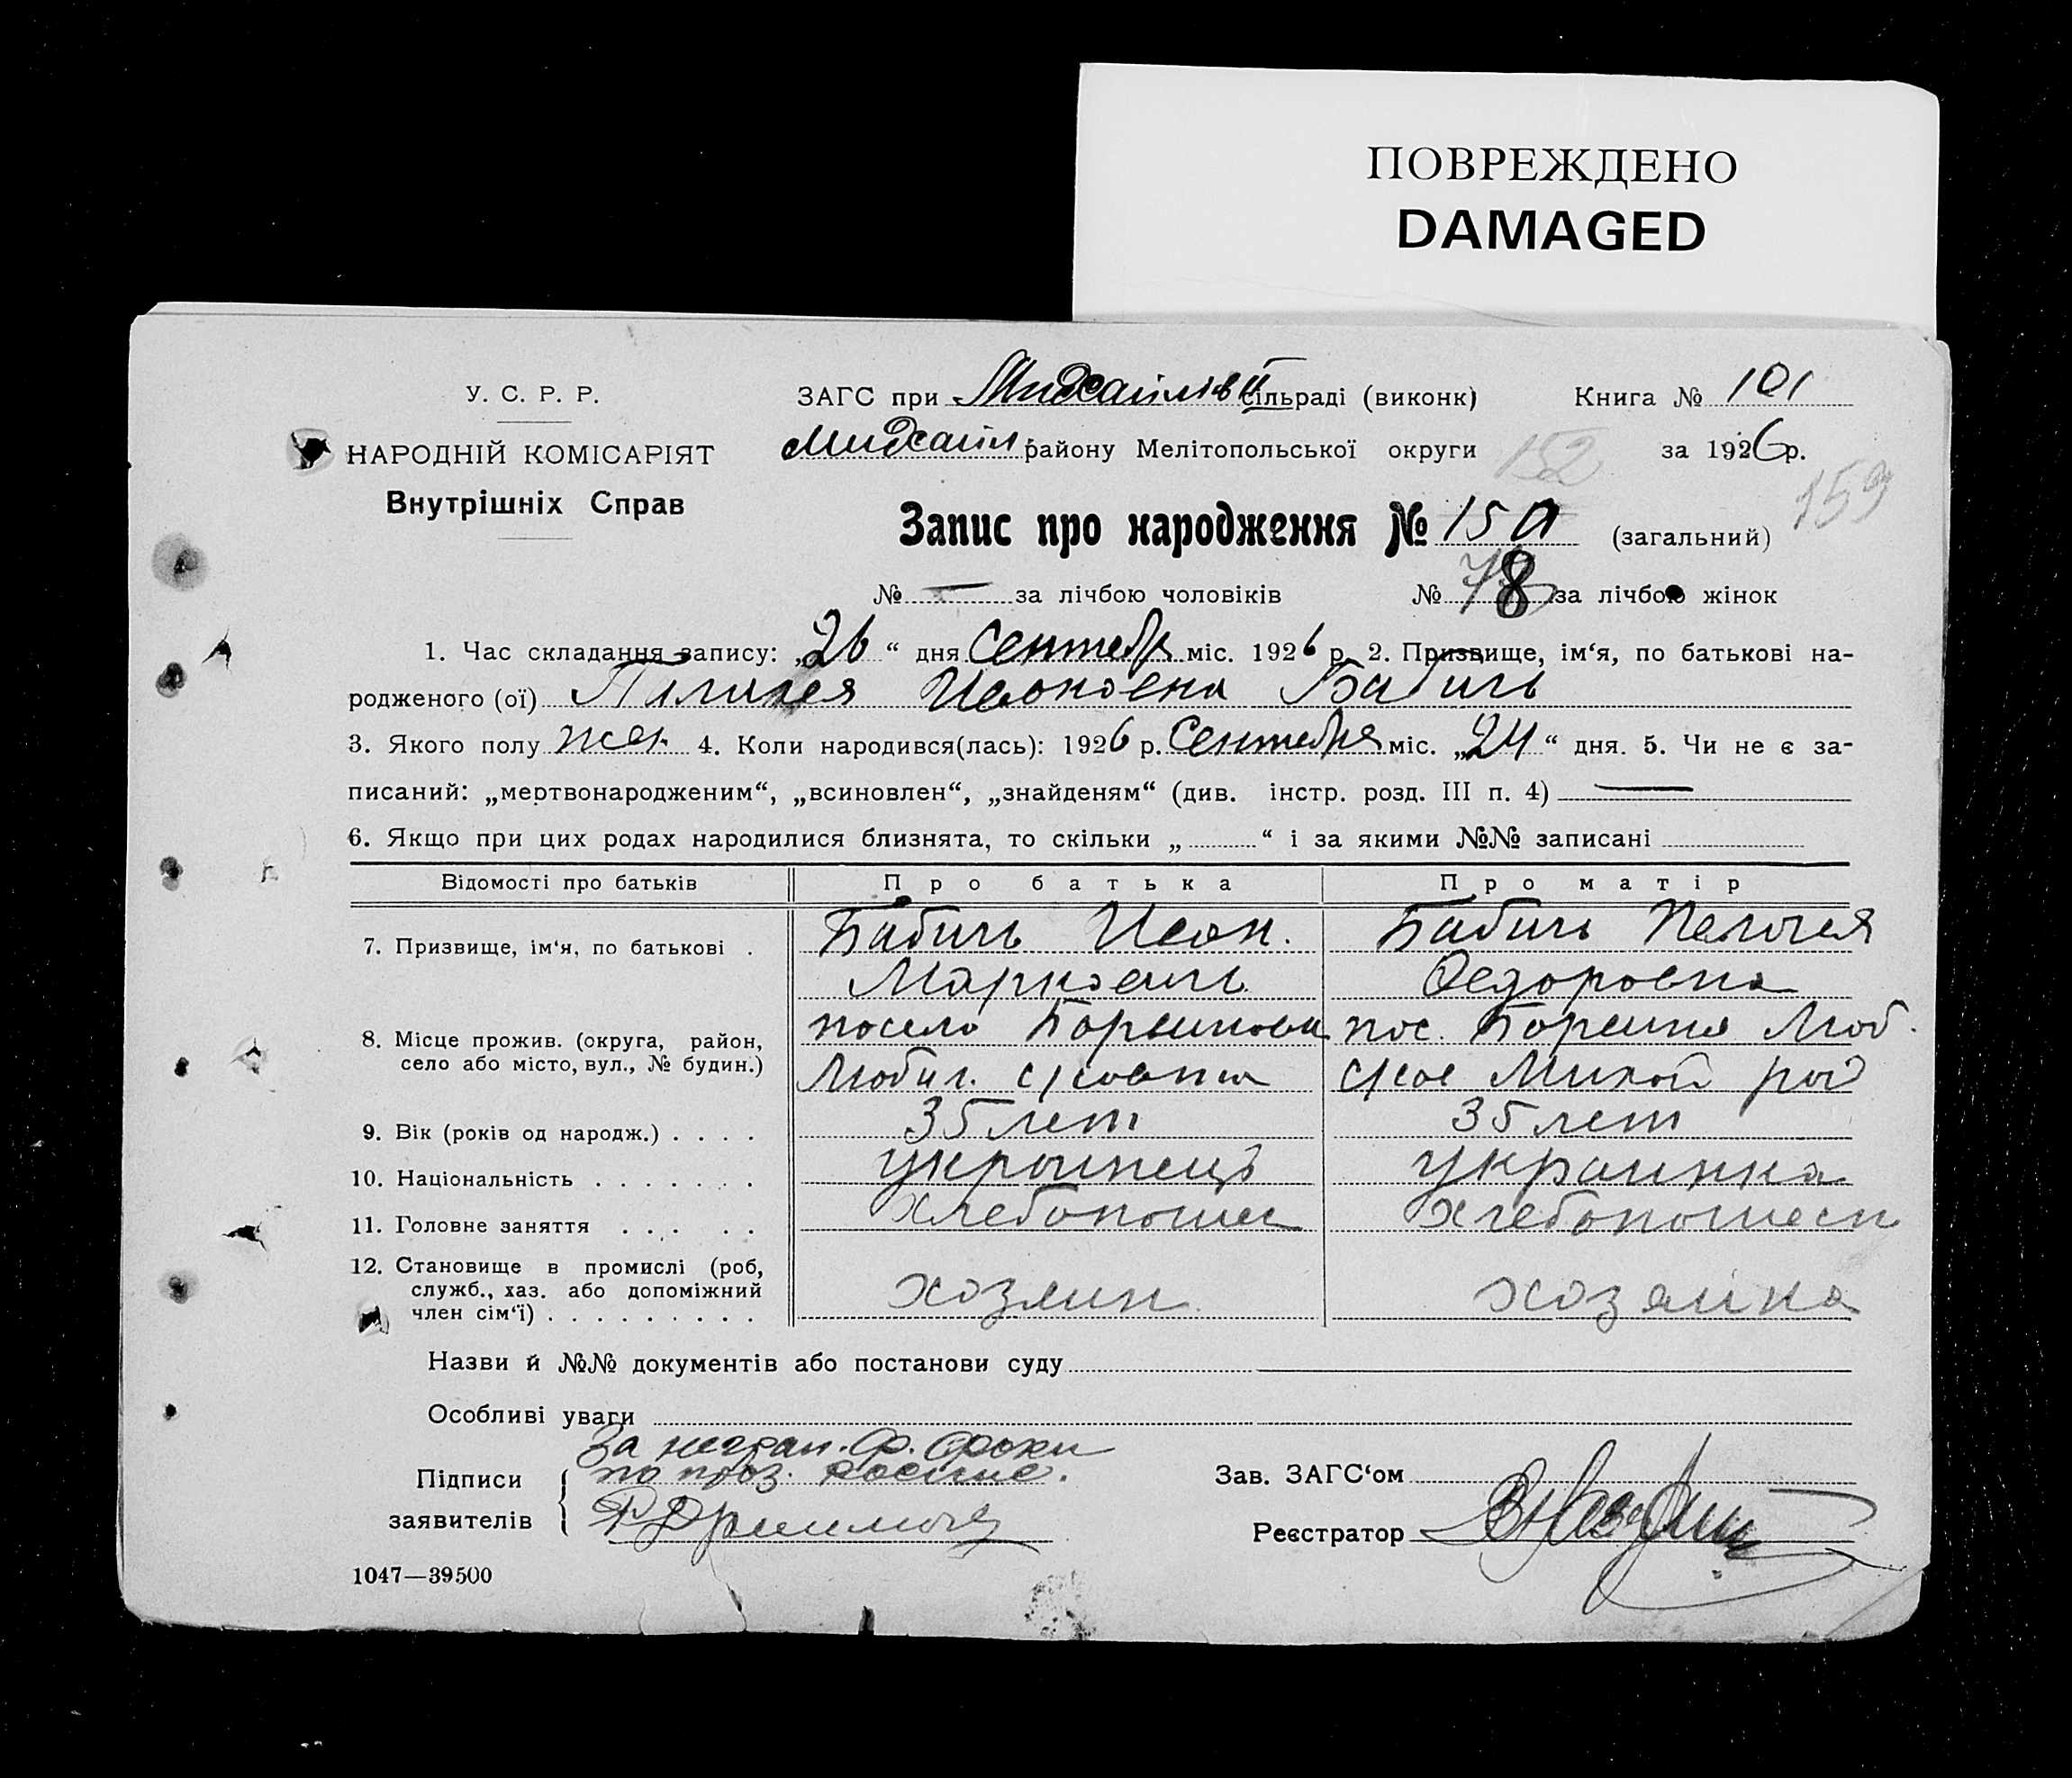 ПОВРЕЖДЕНО
DAMAGED
У. С. Р. Р.
НАРОДНІЙ КОМІСАРІЯТ
Внутрішніх Справ
ЗАГС при Михайлівській сільраді (виконк)
Книга № 101
Михайл. району Мелітопольської округи
152
за 1926 р.
159
Запис про народження № 150 (загальний)
№ — за лічбою чоловіків № 78 за лічбою жінок
1. Час складання запису: „26“ дня Сентебр міс. 1926 р. 2. Призвище, ім‘я, по батькові на-
родженого (ої) Пилигея Ивоновна Бабичь
3. Якого полу жен. 4. Коли народився(лась): 1926 р. Сентебря міс. „24“ дня. 5. Чи не є за-
писаний: „мертвонародженим“, „всиновлен“, „знайденям“ (див. інстр. розд. III п. 4) —
6. Якщо при цих родах народилися близнята, то скільки „ “ і за якими №№ записані
Відомості про батьків Про батька Про матір
7. Призвище, ім‘я, по батькові . Бабичь Ивон. Бабичь Пелогея
Маркович Федоровна
8. Місце прожив. (округа, район, село або місто, вул., № будин.) посело пос. Люб.
Любим. с/совта с/сов Михай рай
9. Вік (років од народж.) . . . . 35 лет 35 лет
10. Національність . . . . . . . украинець украинка
11. Головне заняття . . . . . Хлебопошес Хлебопошесп
12. Становище в промислі (роб, служб., хаз. або допоміжний член сім‘ї) . . . . . . . . . хозяин хозяика
Назви й №№ документів або постанови суду
Особливі уваги
За неграм.
по
Підписи
заявителів
Зав. ЗАГС‘ом
Реєстратор
1047—39500